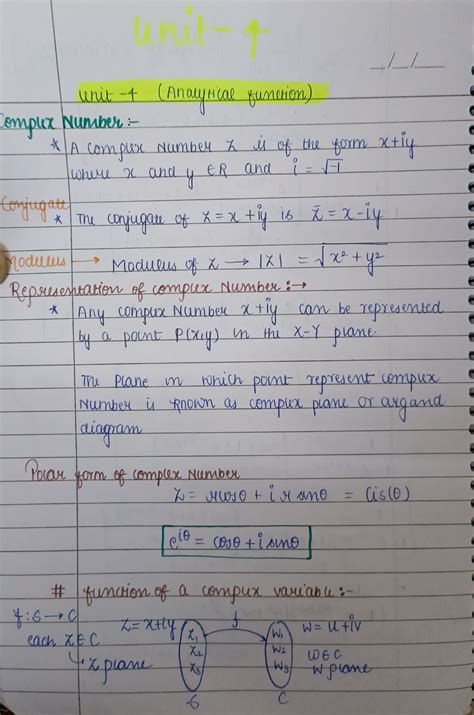 Unit-4
_/_/__
Unit-4 (Analytical function)
Complex Number:-
* A complex Number Z is of the form x+iy
where x and y ∈ R and i = √-1
Conjugate
* The conjugate of Z = x+iy is z̄ = x-iy
Modulus → Modulus of Z → |Z| = √x²+y²
Representation of complex Number:→
* Any complex Number x+iy can be represented
by a point P(x,y) in the X-Y plane
The Plane in which point represent complex
Number is known as complex plane or argand
diagram
Polar form of complex Number
Z = rcosθ + i r sinθ = Cis(θ)
e^iθ = cosθ + i sinθ
# function of a complex variable:-
f: S → C
each Z ∈ C
↳ Z plane
Z = x+iy
f
Z₁
Z₂
Z₃
W₁
W₂
W₃
W = u+iv
W∈C
W plane
C